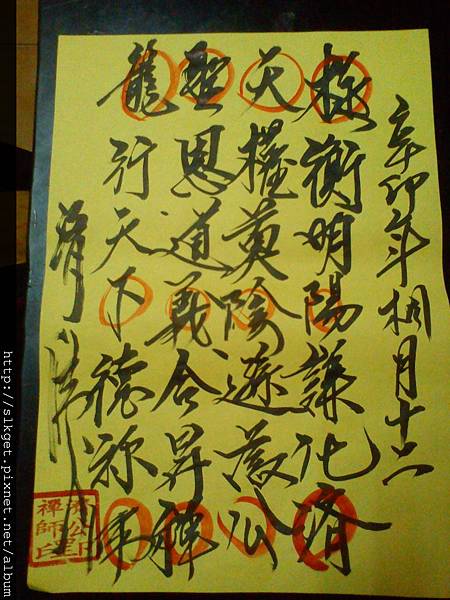 辛卯年桐月十六
衡明陽謙化濟
天權莫陰公
聖恩道義合昇禪
龍行天下德師
濟公禪師
http://slkget.pixnet.net/album